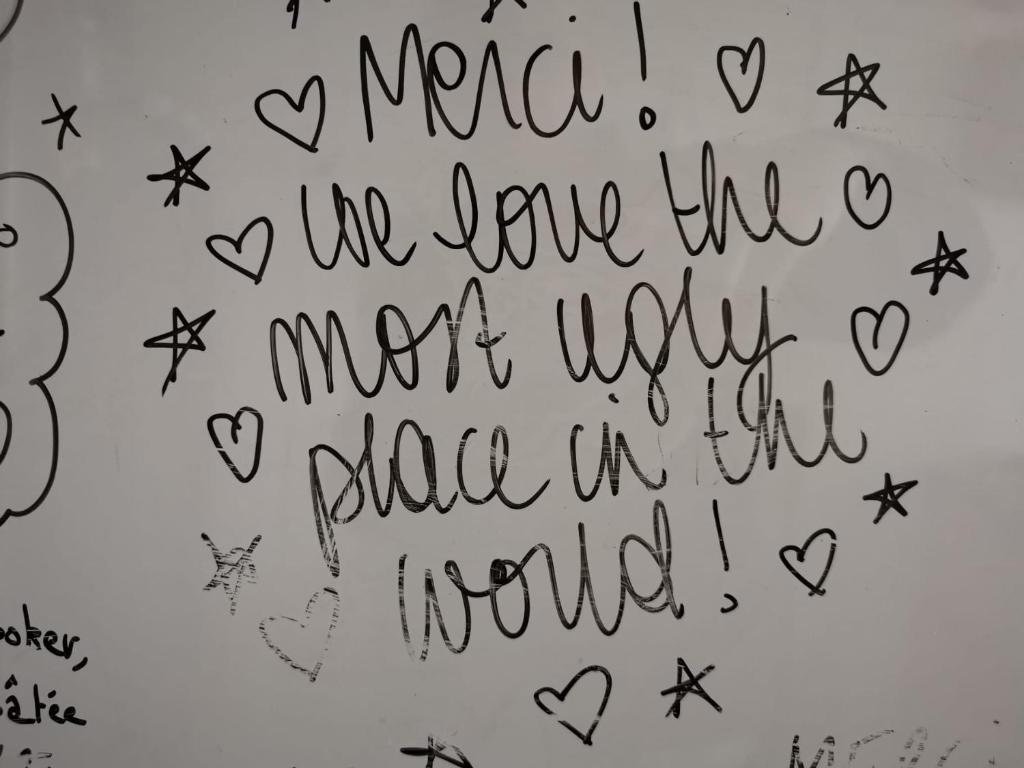 Merci !
We love the
most ugly
place in the
world !
oker,
âtée